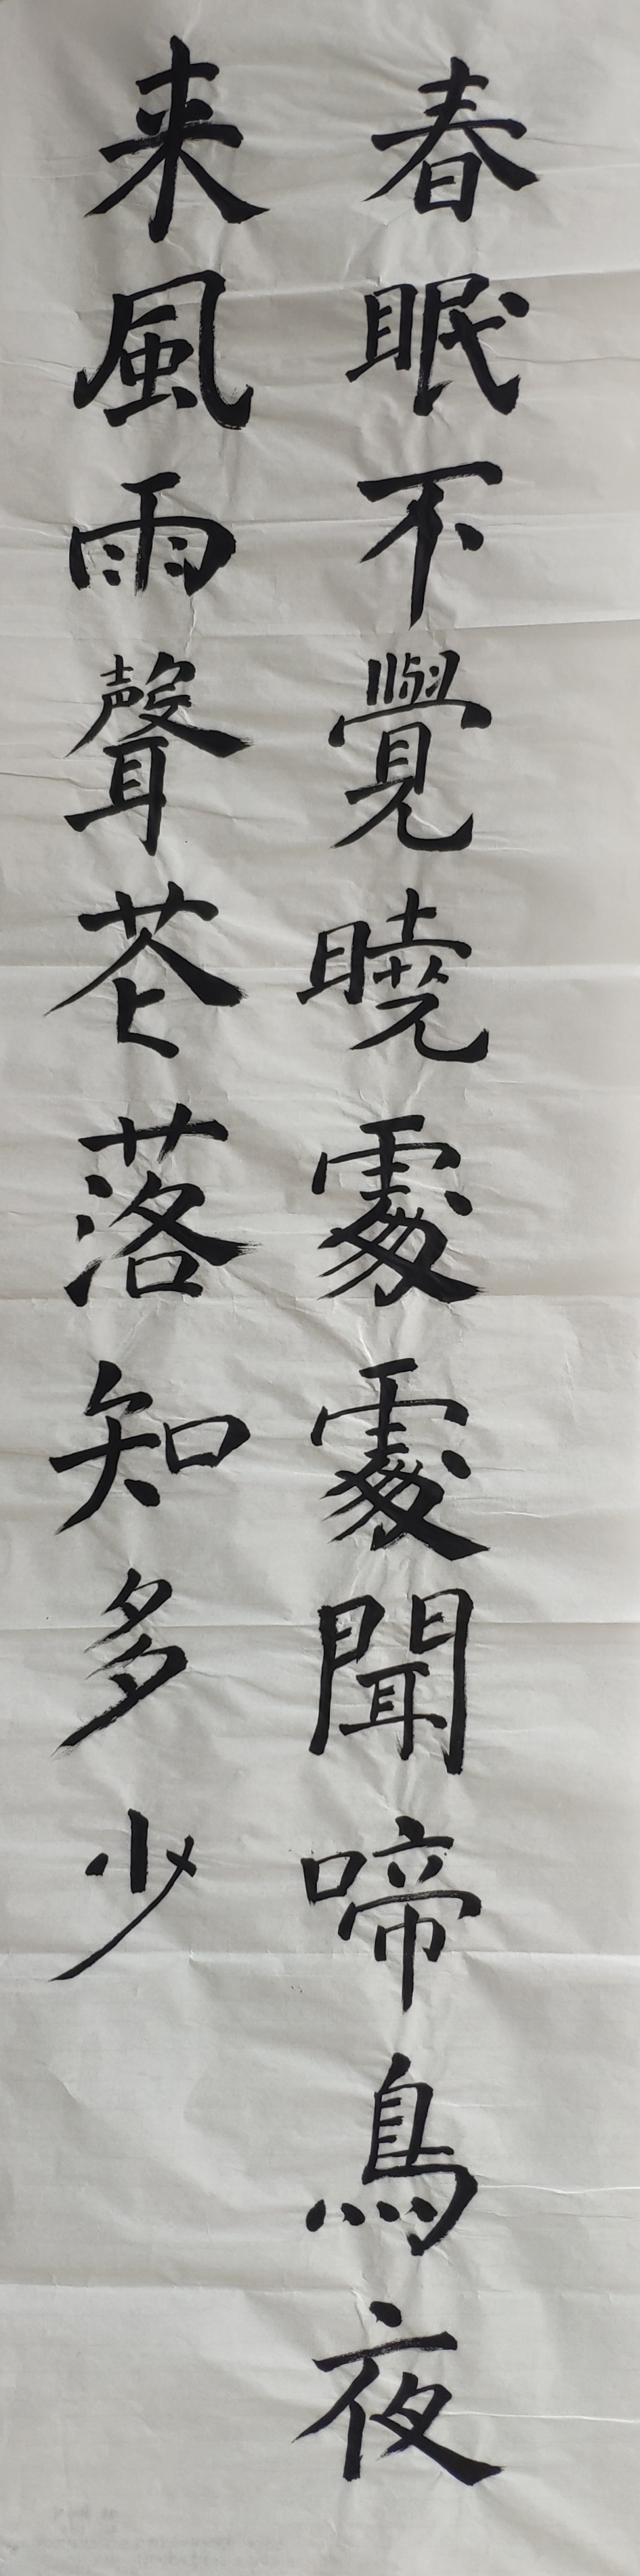 春眠不覺曉處處聞啼鳥夜
来風雨聲花落知多少